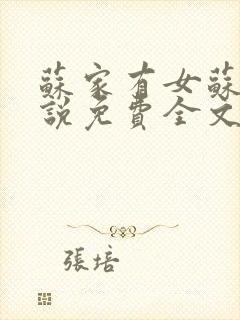 蘇家有女蘇
說免費全文
張培